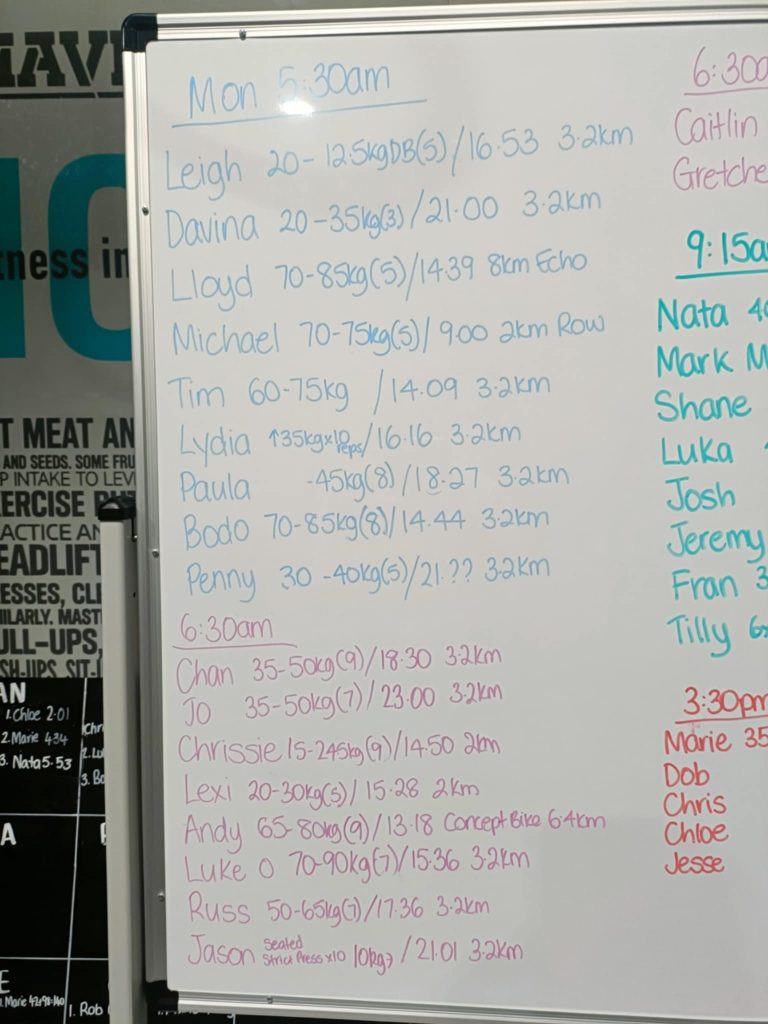 Mon 5:30am
Leigh 20-12.5kgDB(5)/16.53 3.2km
Davina 20-35kg(3)/21.00 3.2km
Lloyd 70-85kg(5)/14.39 8km Echo
Michael 70-75kg(5)/9.00 2km Row
Tim 60-75kg /14.09 3.2km
Lydia ↑35kgx10reps/16.16 3.2km
Paula -45kg(8)/18.27 3.2km
Bodo 70-85kg(8)/14.44 3.2km
Penny 30-40kg(5)/21.?? 3.2km
6:30am
Chan 35-50kg(9)/18.30 3.2km
Jo 35-50kg(7)/23.00 3.2km
Chrissie 15-245kg(9)/14.50 2km
Lexi 20-30kg(5)/15.28 2km
Andy 65-80kg(9)/13.18 Concept Bike 6.4km
Luke O 70-90kg(7)/15.36 3.2km
Russ 50-65kg /17.36 3.2km
Jason Seated Strict Press x10 10kg /21.01 3.2km
6:30a
Caitlin
Gretche
9:15a
Nata
Mark M
Shane
Luka
Josh
Jeremy
Fran 3
Tilly
3:30pm
Marie 35
Dob
Chris
Chloe
Jesse
ness in
T MEAT AN
AND SEEDS. SOME FRU
P INTAKE TO LEV
ERCISE
ACTICE AN
EADLIFT
ESSES, CL
ILARLY. MAST
ULL-UPS,
SH-UPS, SIT-
AN
1. Chloe 2.01
2. Marie 4.34
3. Nata 5.53
Chr
2. Lu
3. Bo
A
E
1. Rob